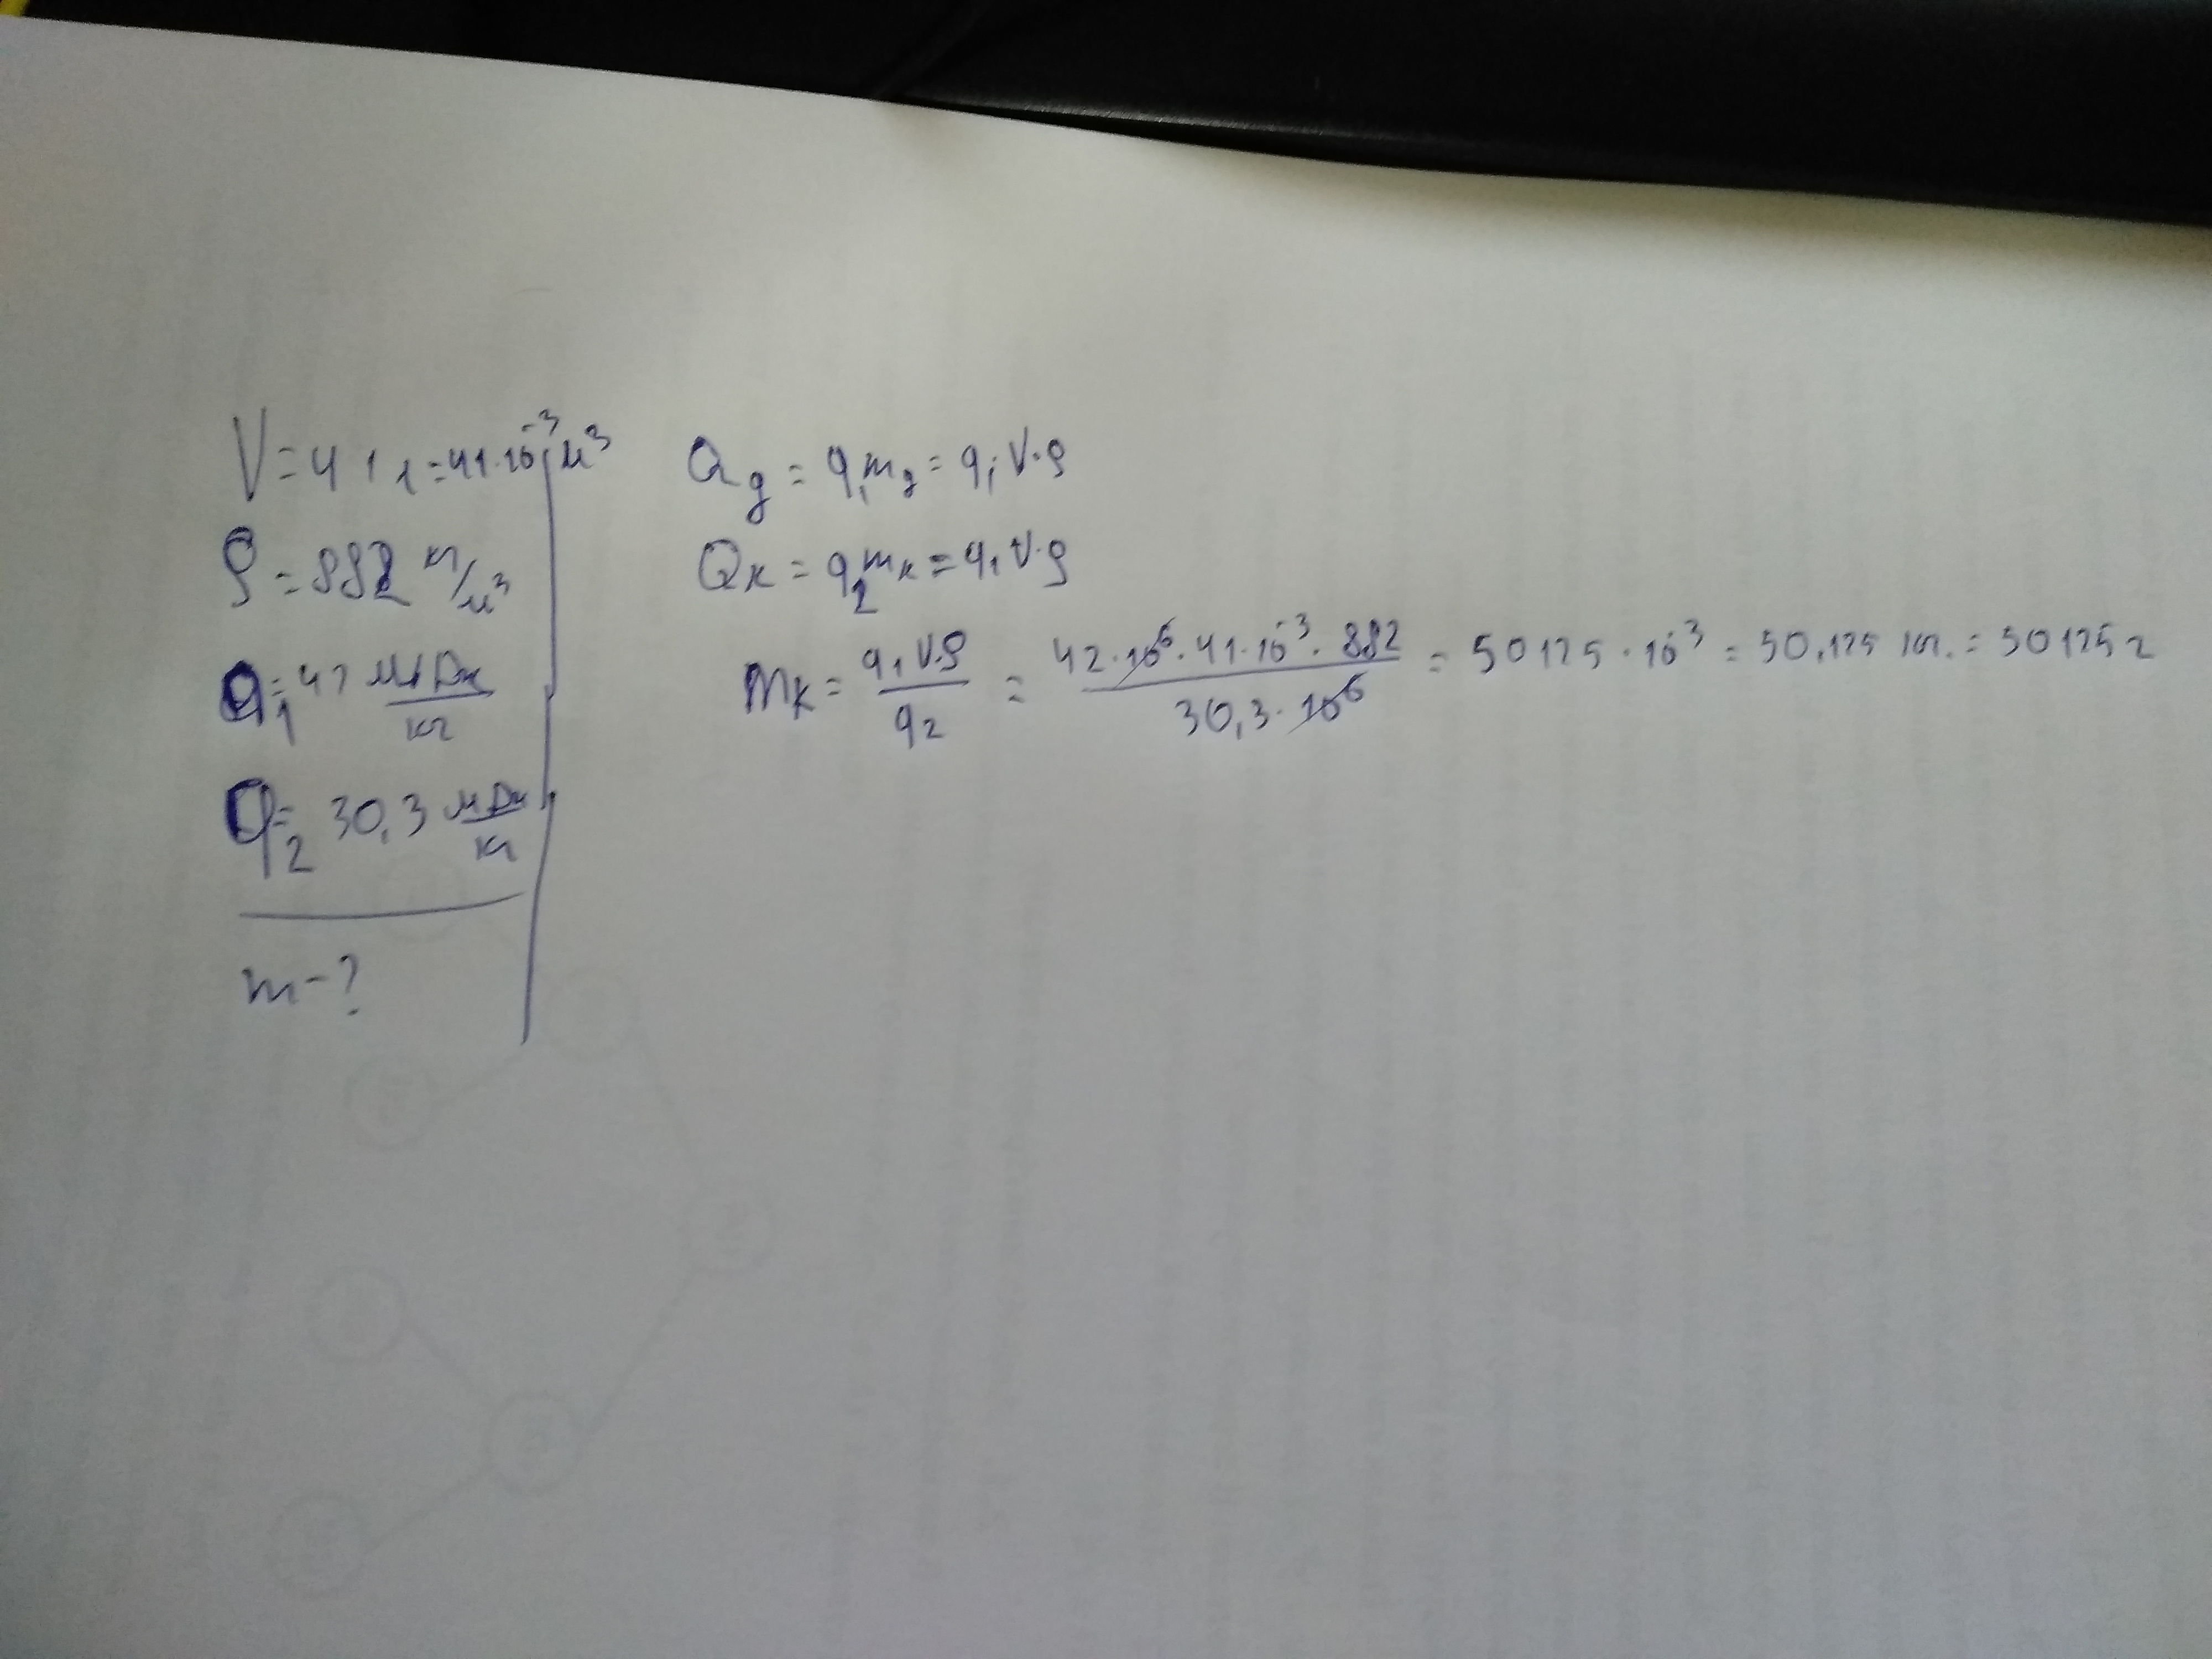 V = 41 л = 41·10⁻³ м³
ρ = 882 кг/м³
q₁ = 42 МДж/кг
q₂ = 30,3 МДж/кг
m - ?
Qg = q₁mg = q₁V·ρ
Qк = q₂mк = q₁V·ρ
mк = q₁V·ρ/q₂ = 42·10⁶·41·10⁻³·882/30,3·10⁶ = 50125·10⁻³ = 50,125 кг. = 50125 г